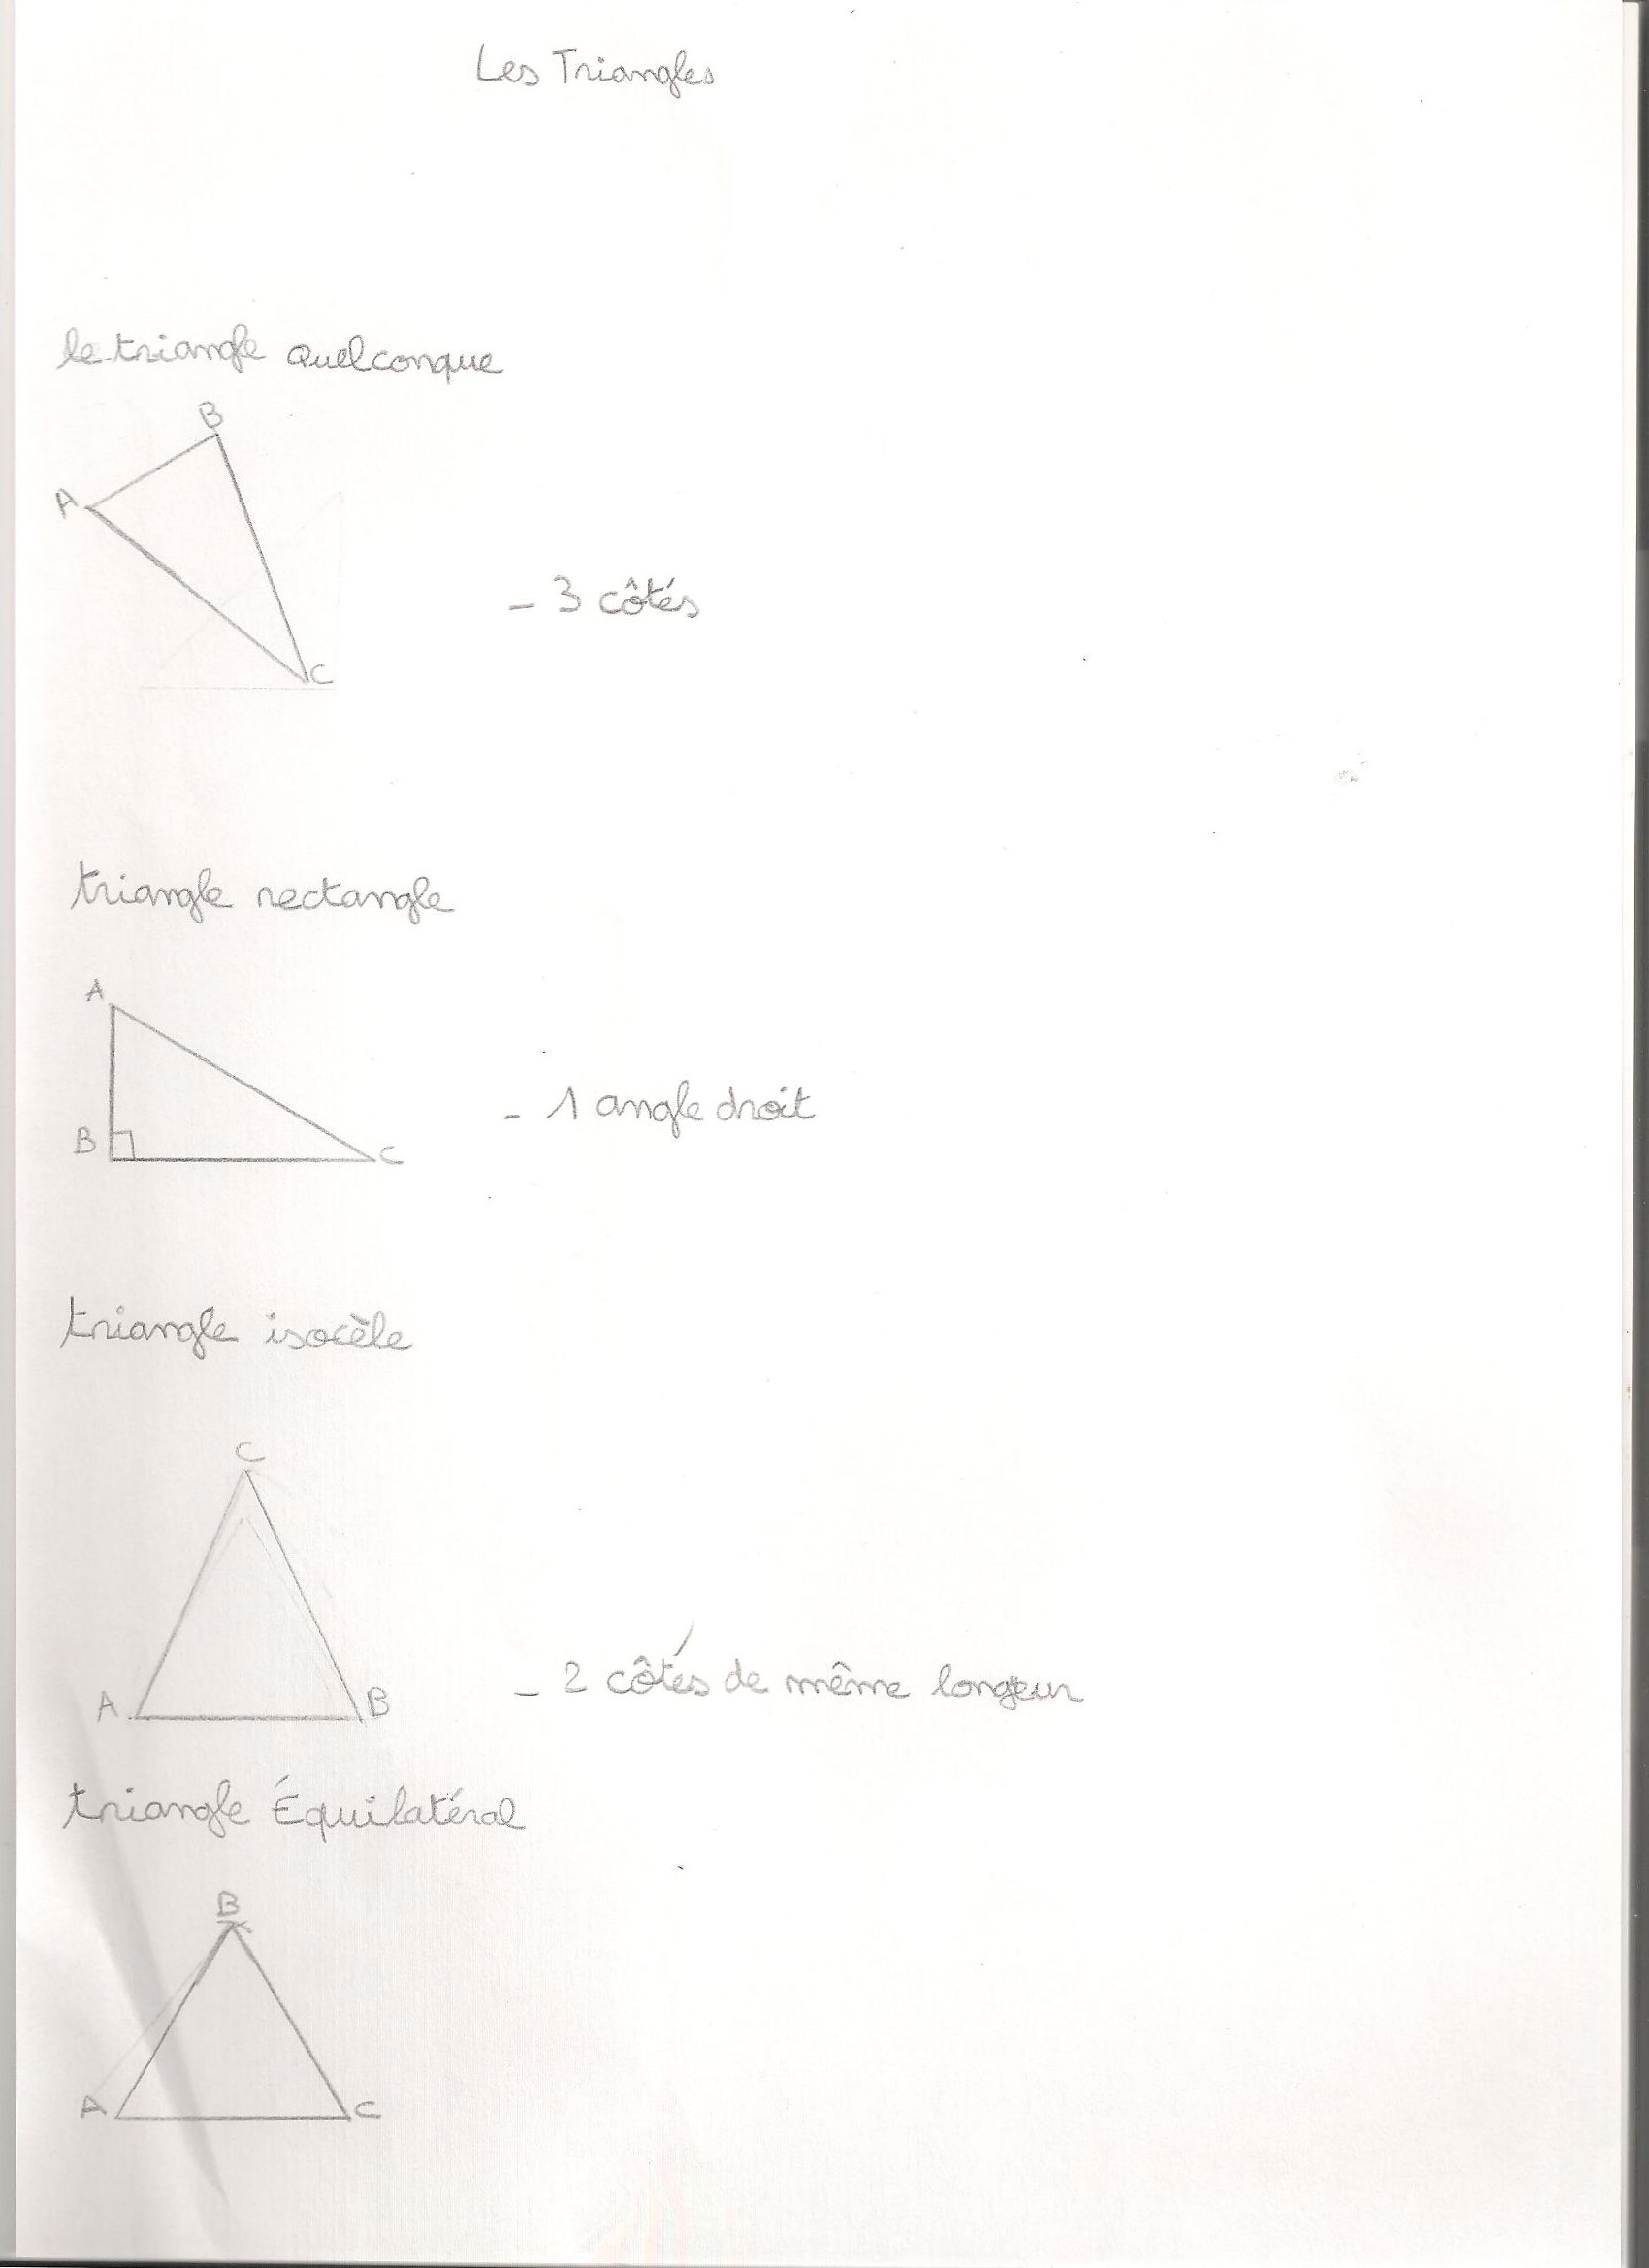 Les Triangles
le triangle quelconque
B
A
- 3 côtés
C
triangle rectangle
A
- 1 angle droit
B
C
triangle isocèle
C
- 2 côtés de même longeur
A
B
triangle Équilatéral
B
A
C